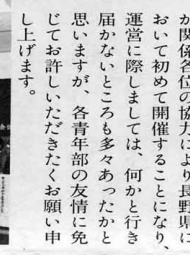 か関係各位の協力により長野県に
おいて初めて開催することになり、
運営に際しましては、何かと行き
届かないところも多々あったかと
思いますが、各青年部の友情に免
じてお許しいただきたくお願い申
し上げます。